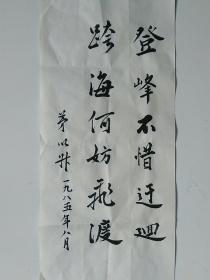 登峰不惜迂迴
跨海何妨飛渡
茅以昇 一九八五年八月